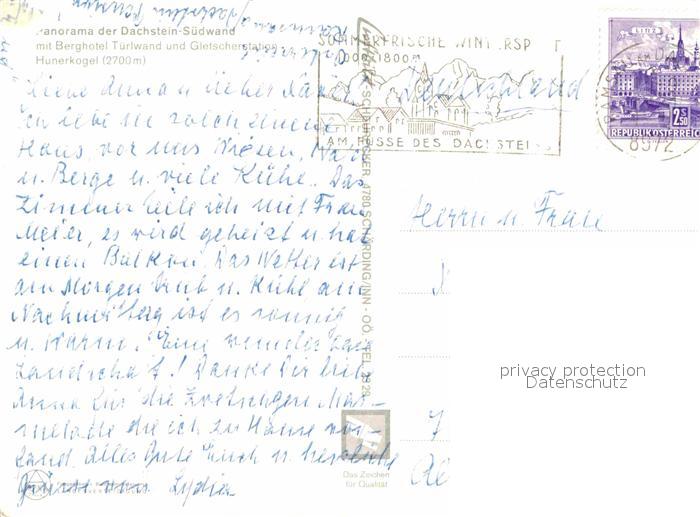 Panorama der Dachstein-Südwand
mit Berghotel Türlwand und Gletscherstation
Hunerkogel (2700 m)
Liebe Anna u lieber
Ich lebe in solch einem
Haus vor uns Wiesen, Wald
u. Berge u. viele Kühe. Das
Zimmer teile ich mit Frau
Meier, es wird geheizt u. hat
einen Balkon. Das Wetter ist
am Morgen trüb u. Kühl am
Nachmittag ist es sonnig
u. warm. Eine
Landschaft! Danke dir liebe
Anna für die Zwetschgen Mar-
melade die ich zu Hause vor-
fand. Alles Gute Euch u. herzliche
Grüsse von Lydia
SOMMERFRISCHE WINTERSP T
1000/1800m
AM FUSSE DES DACHSTEINS
LINZ
2.50
REPUBLIK ÖSTERREICH
8972
Deutschland
4780 SCHÄRDING/INN - OÖ., TEL.
Herrn u Frau
7
privacy protection
Datenschutz
Das Zeichen
für Qualität